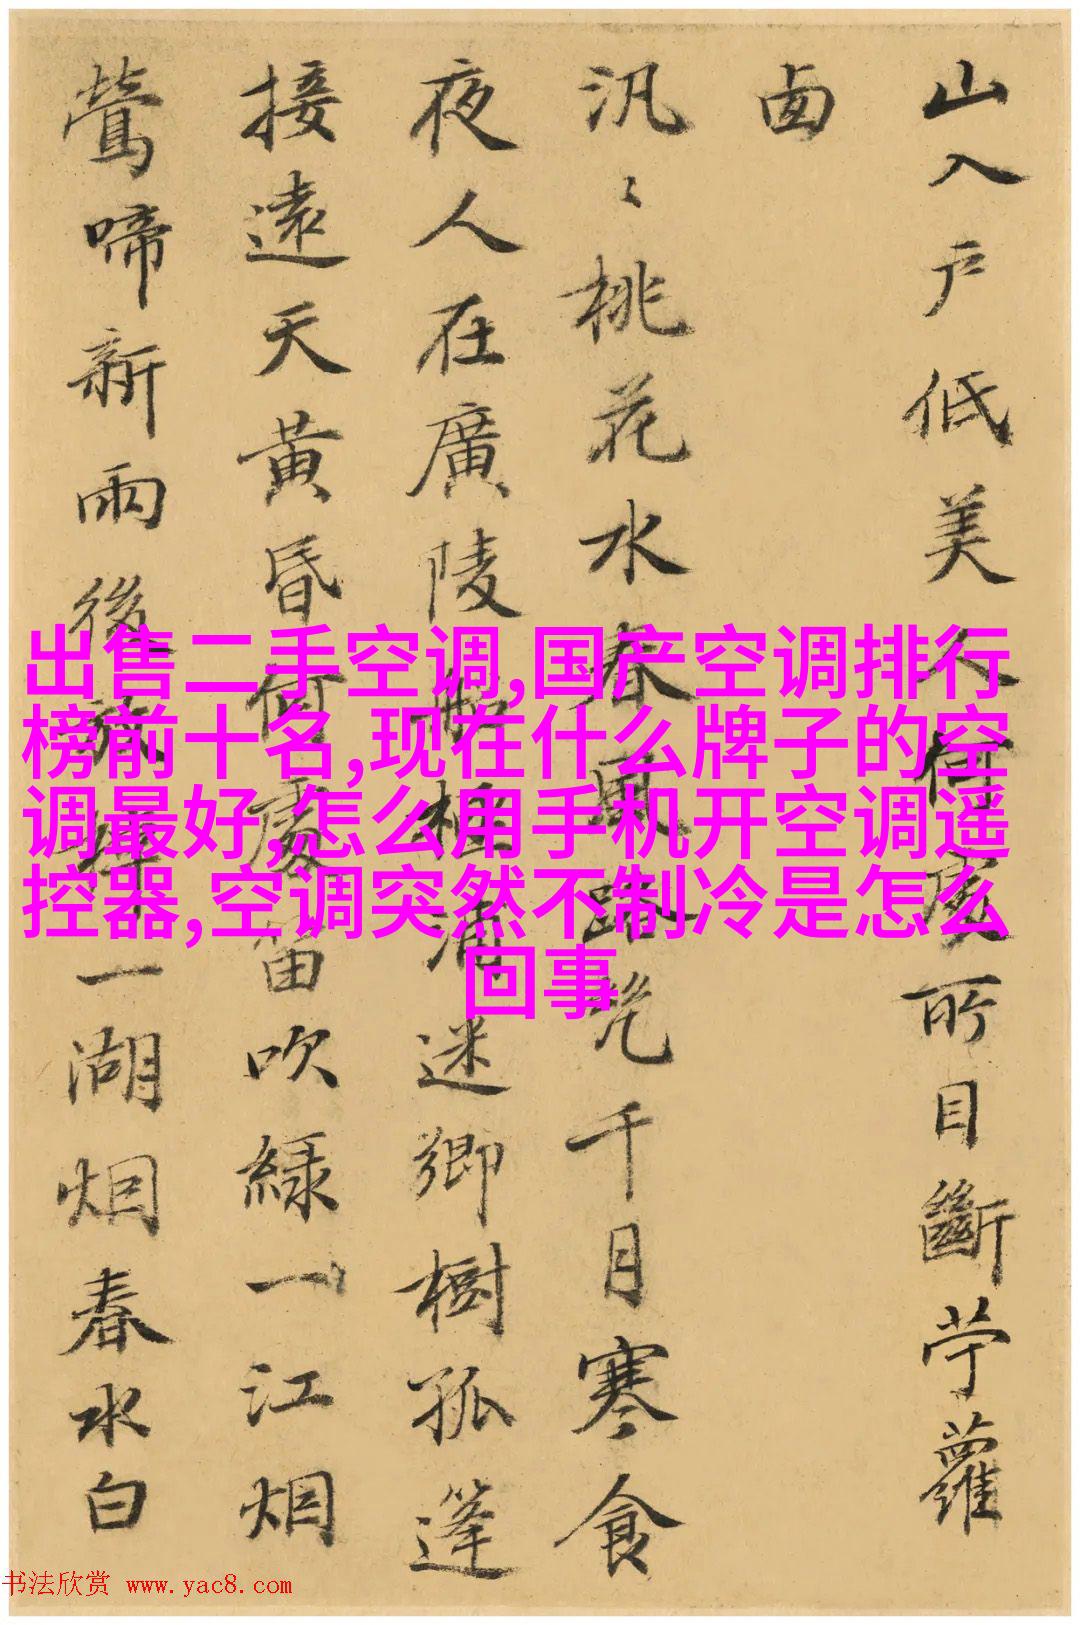 山入戶低美人何處所目斷苧蘿
西
汎〻桃花水春風路幾千月寒食
夜人在廣陵迷鄉樹孤篷
接遠天黃昏何處笛吹綠一江烟
鶯啼新雨後一湖烟春水白
出售二手空调,国产空调排行
榜前十名,现在什么牌子的空
调最好,怎么用手机开空调遥
控器,空调突然不制冷是怎么
回事
书法欣赏 www.yac8.com